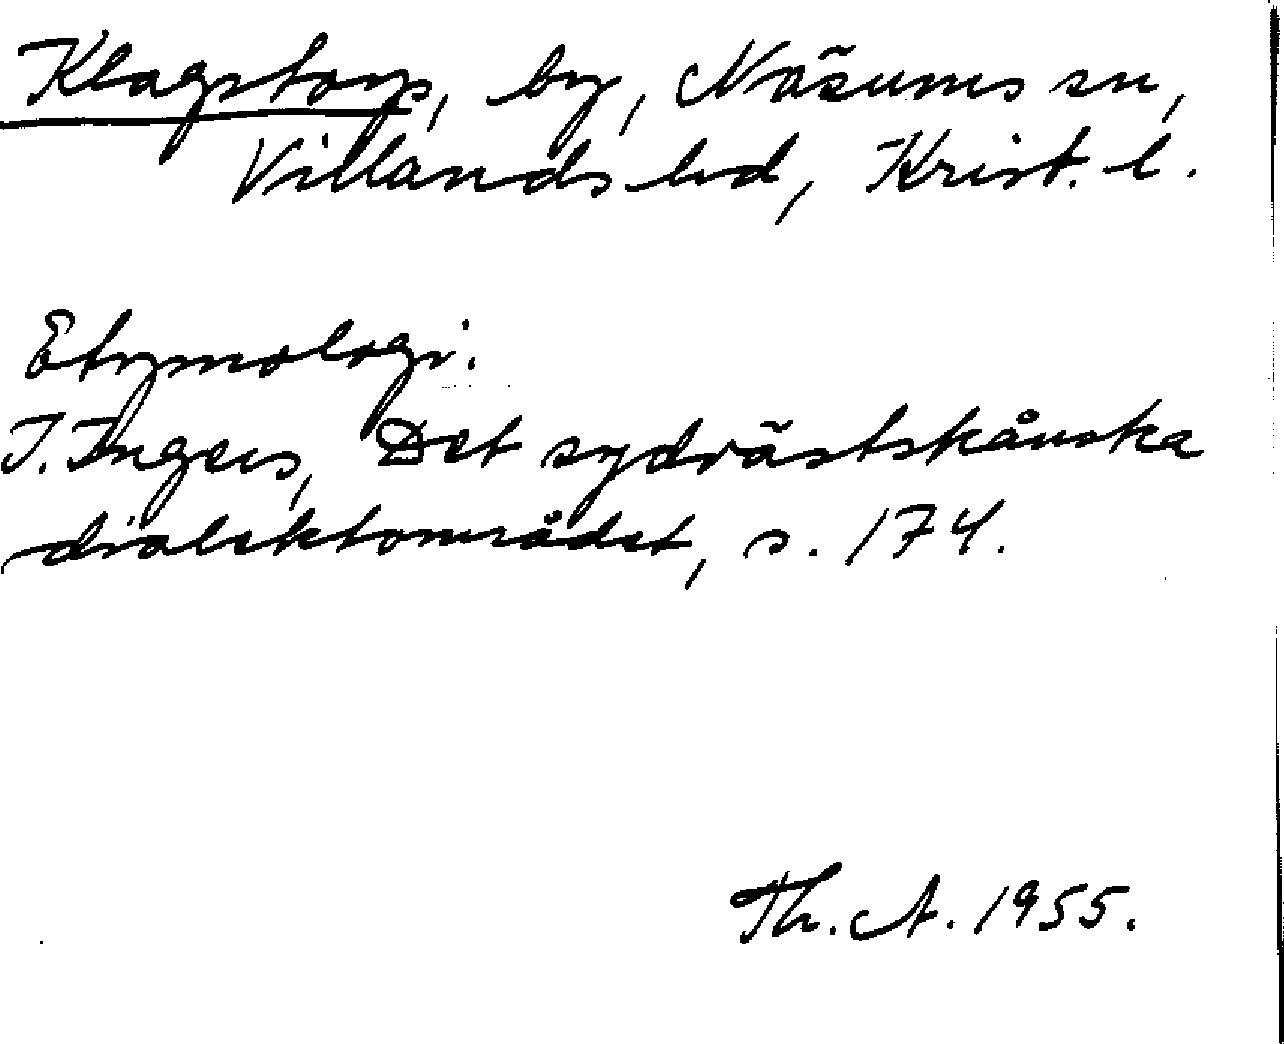 Klagstorp, by, Näsums sn,
Villands hd, Krist. l.
Etymologi.
I. Ingers, Det sydvästskånska
dialektområdet, s. 174.
Th. A. 1955.